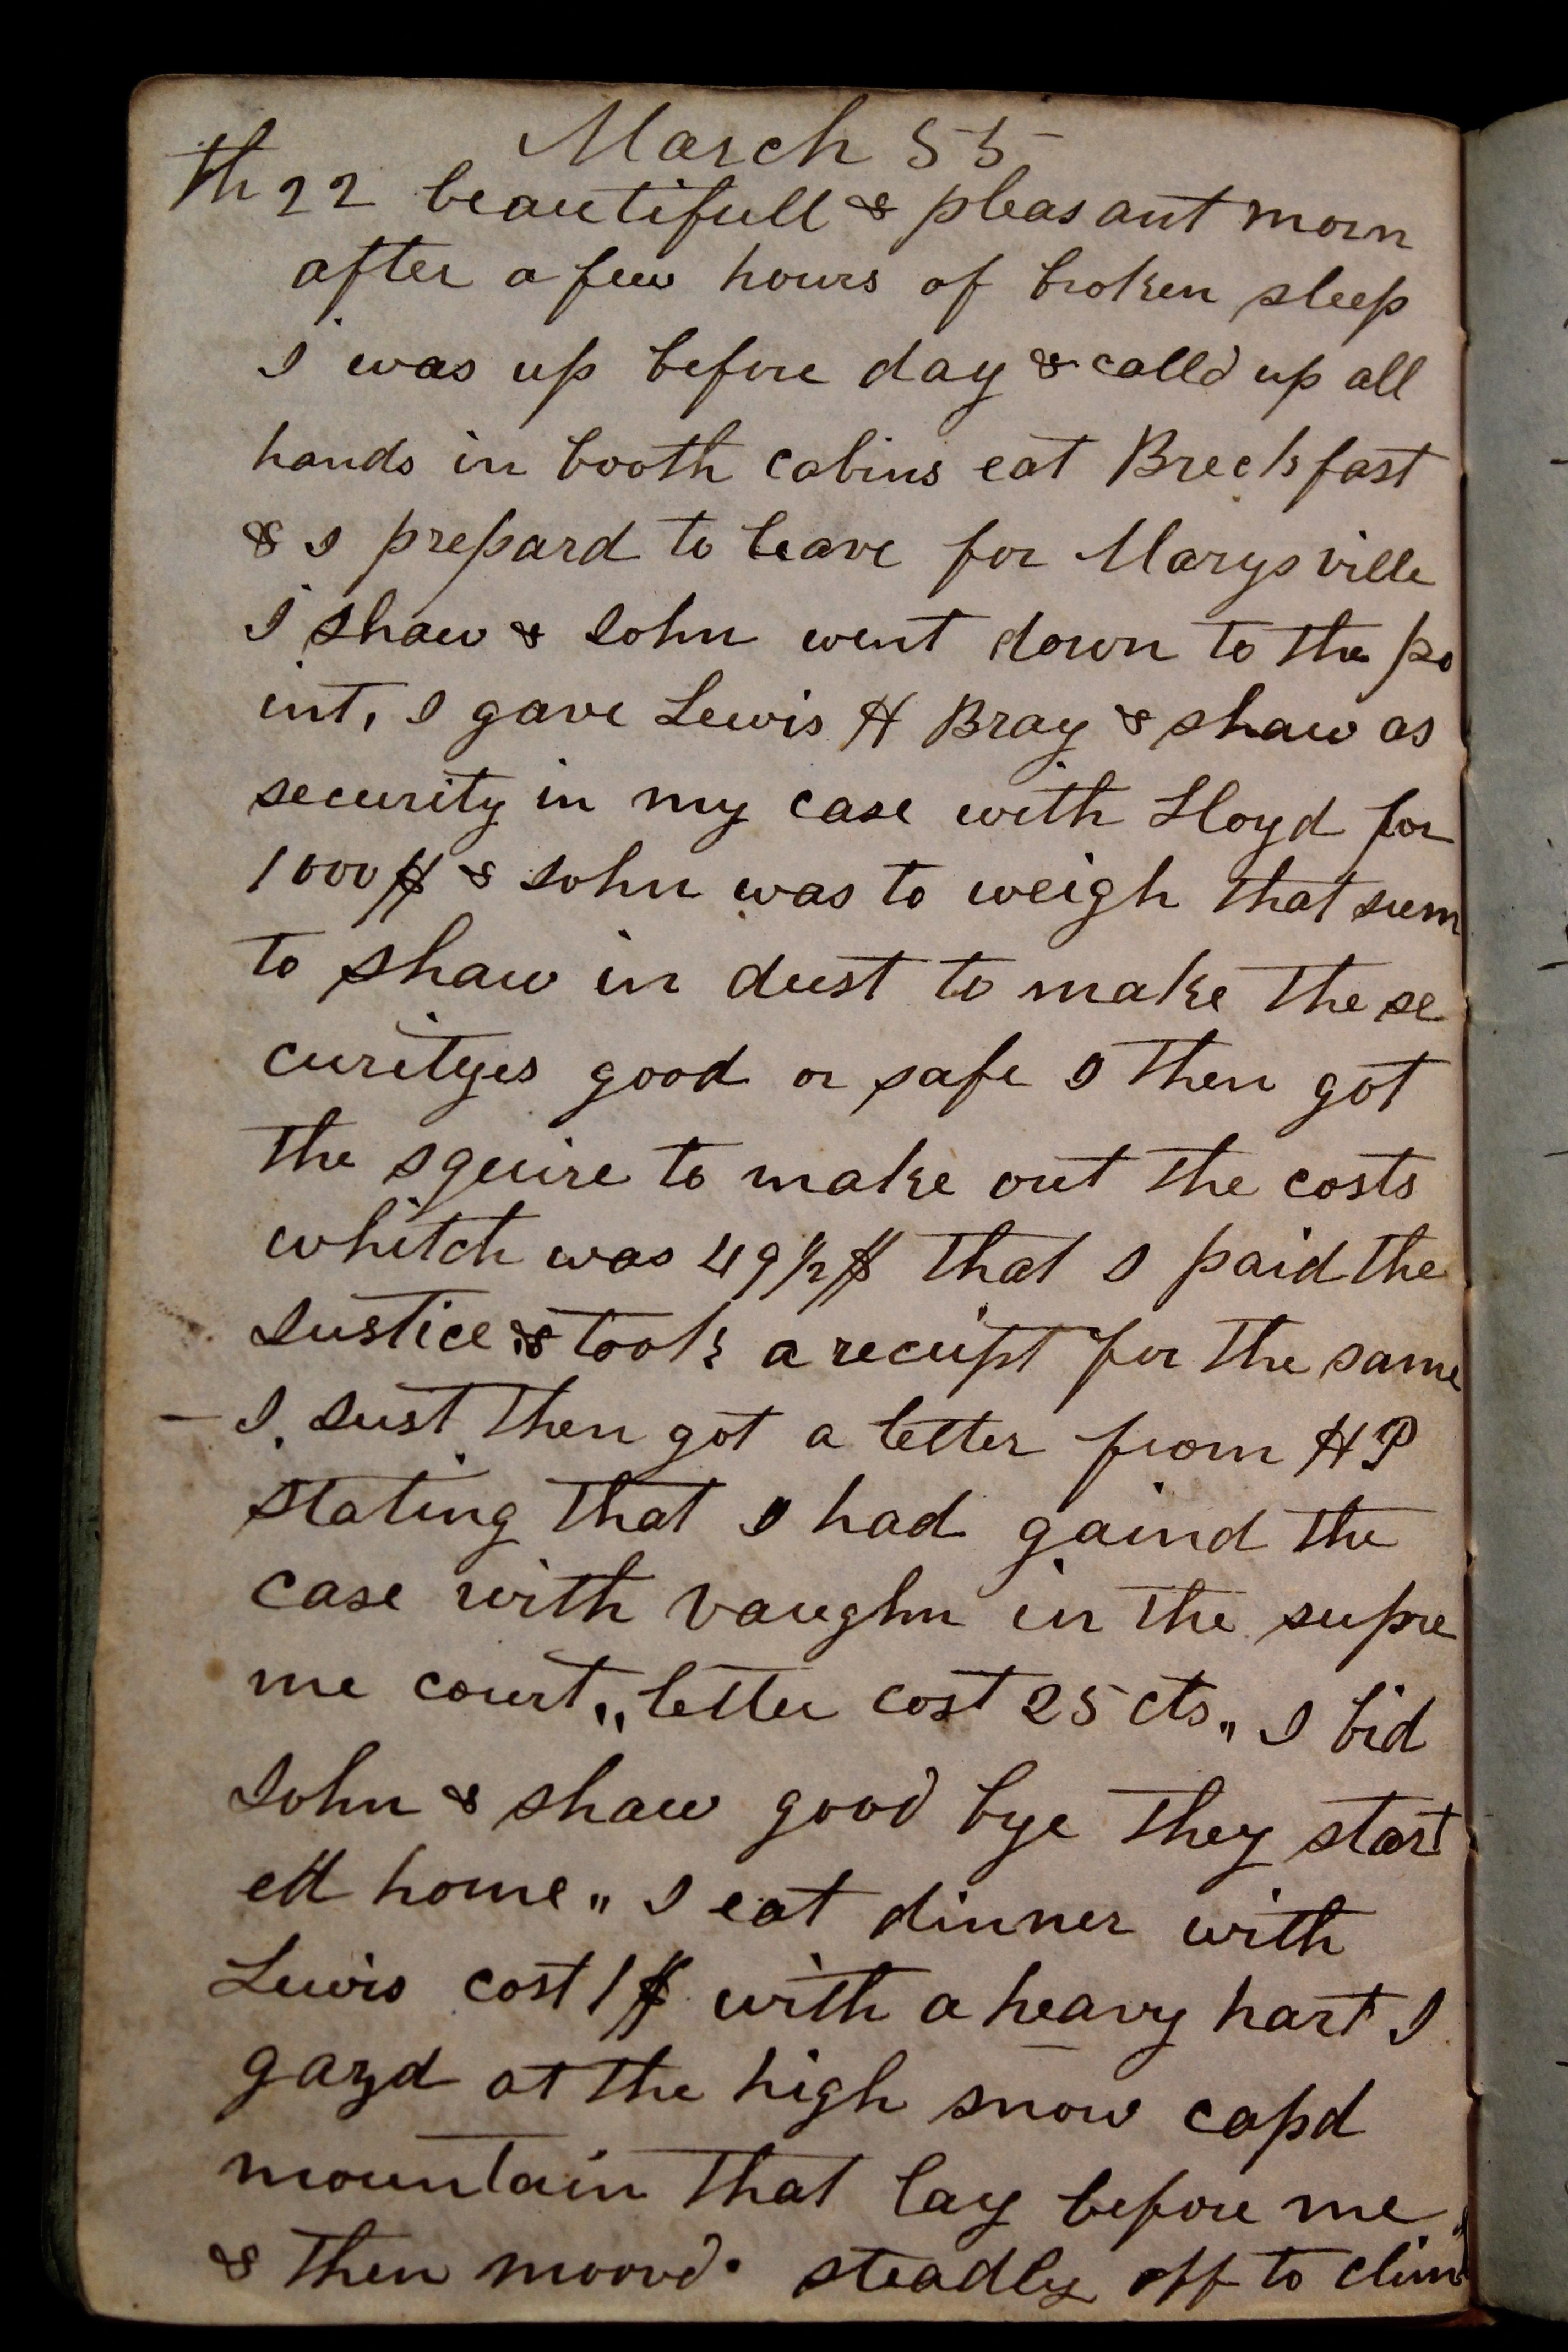 March 55
th 22 beautifull & pleasant morn
after a few hours of broken sleep
I was up before day & calld up all
hands in booth cabins eat Breckfast
& I prepard to leave for Marysville
I shaw & John went down to the po
int, I gave Lewis H Bray & shaw as
security in my case with Lloyd for
1000$ & John was to weigh that sum
to shaw in dust to make the se
curityes good or safe I then got
the squire to make out the costs
whitch was 49 1/2$ that I paid the
Justice & took a receipt for the same
– I Just then got a letter from HP
stating that I had gaind the
case with Vaughn in the supre
me court,, letter cost 25 cts,, I bid
John & shaw good bye they start
ed home,, I eat dinner with
Lewis cost 1$ with a heavy hart I
gazd at the high snow capd
mountain that lay before me,
& then moovd steadly off to clim